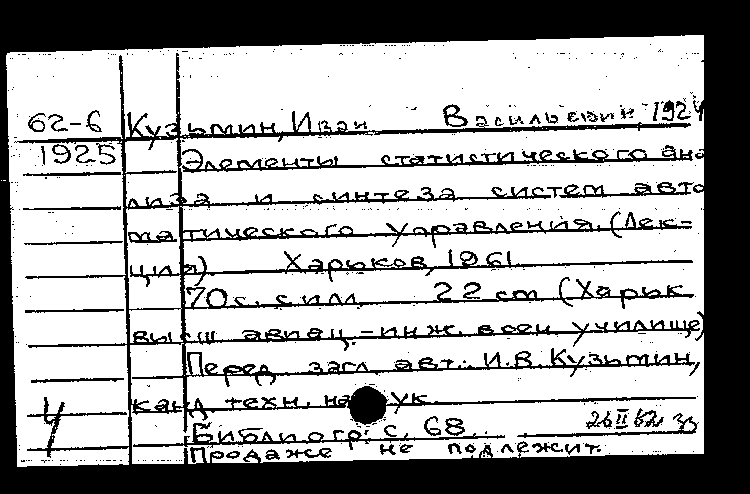 62-6 Кузьмин, Иван Васильевич, 1924
1925 Элементы статистического ана
лиза и синтеза систем авто
матического управления. (Лек-
ция). Харьков, 1961
70 с. с илл. 22 cm (Харьк
высш авиац.-инж. воен училище)
Перед загл. авт.: И.В. Кузьмин,
канд техн. наук.
Библиогр: с. 68.
Продаже не подлежит.